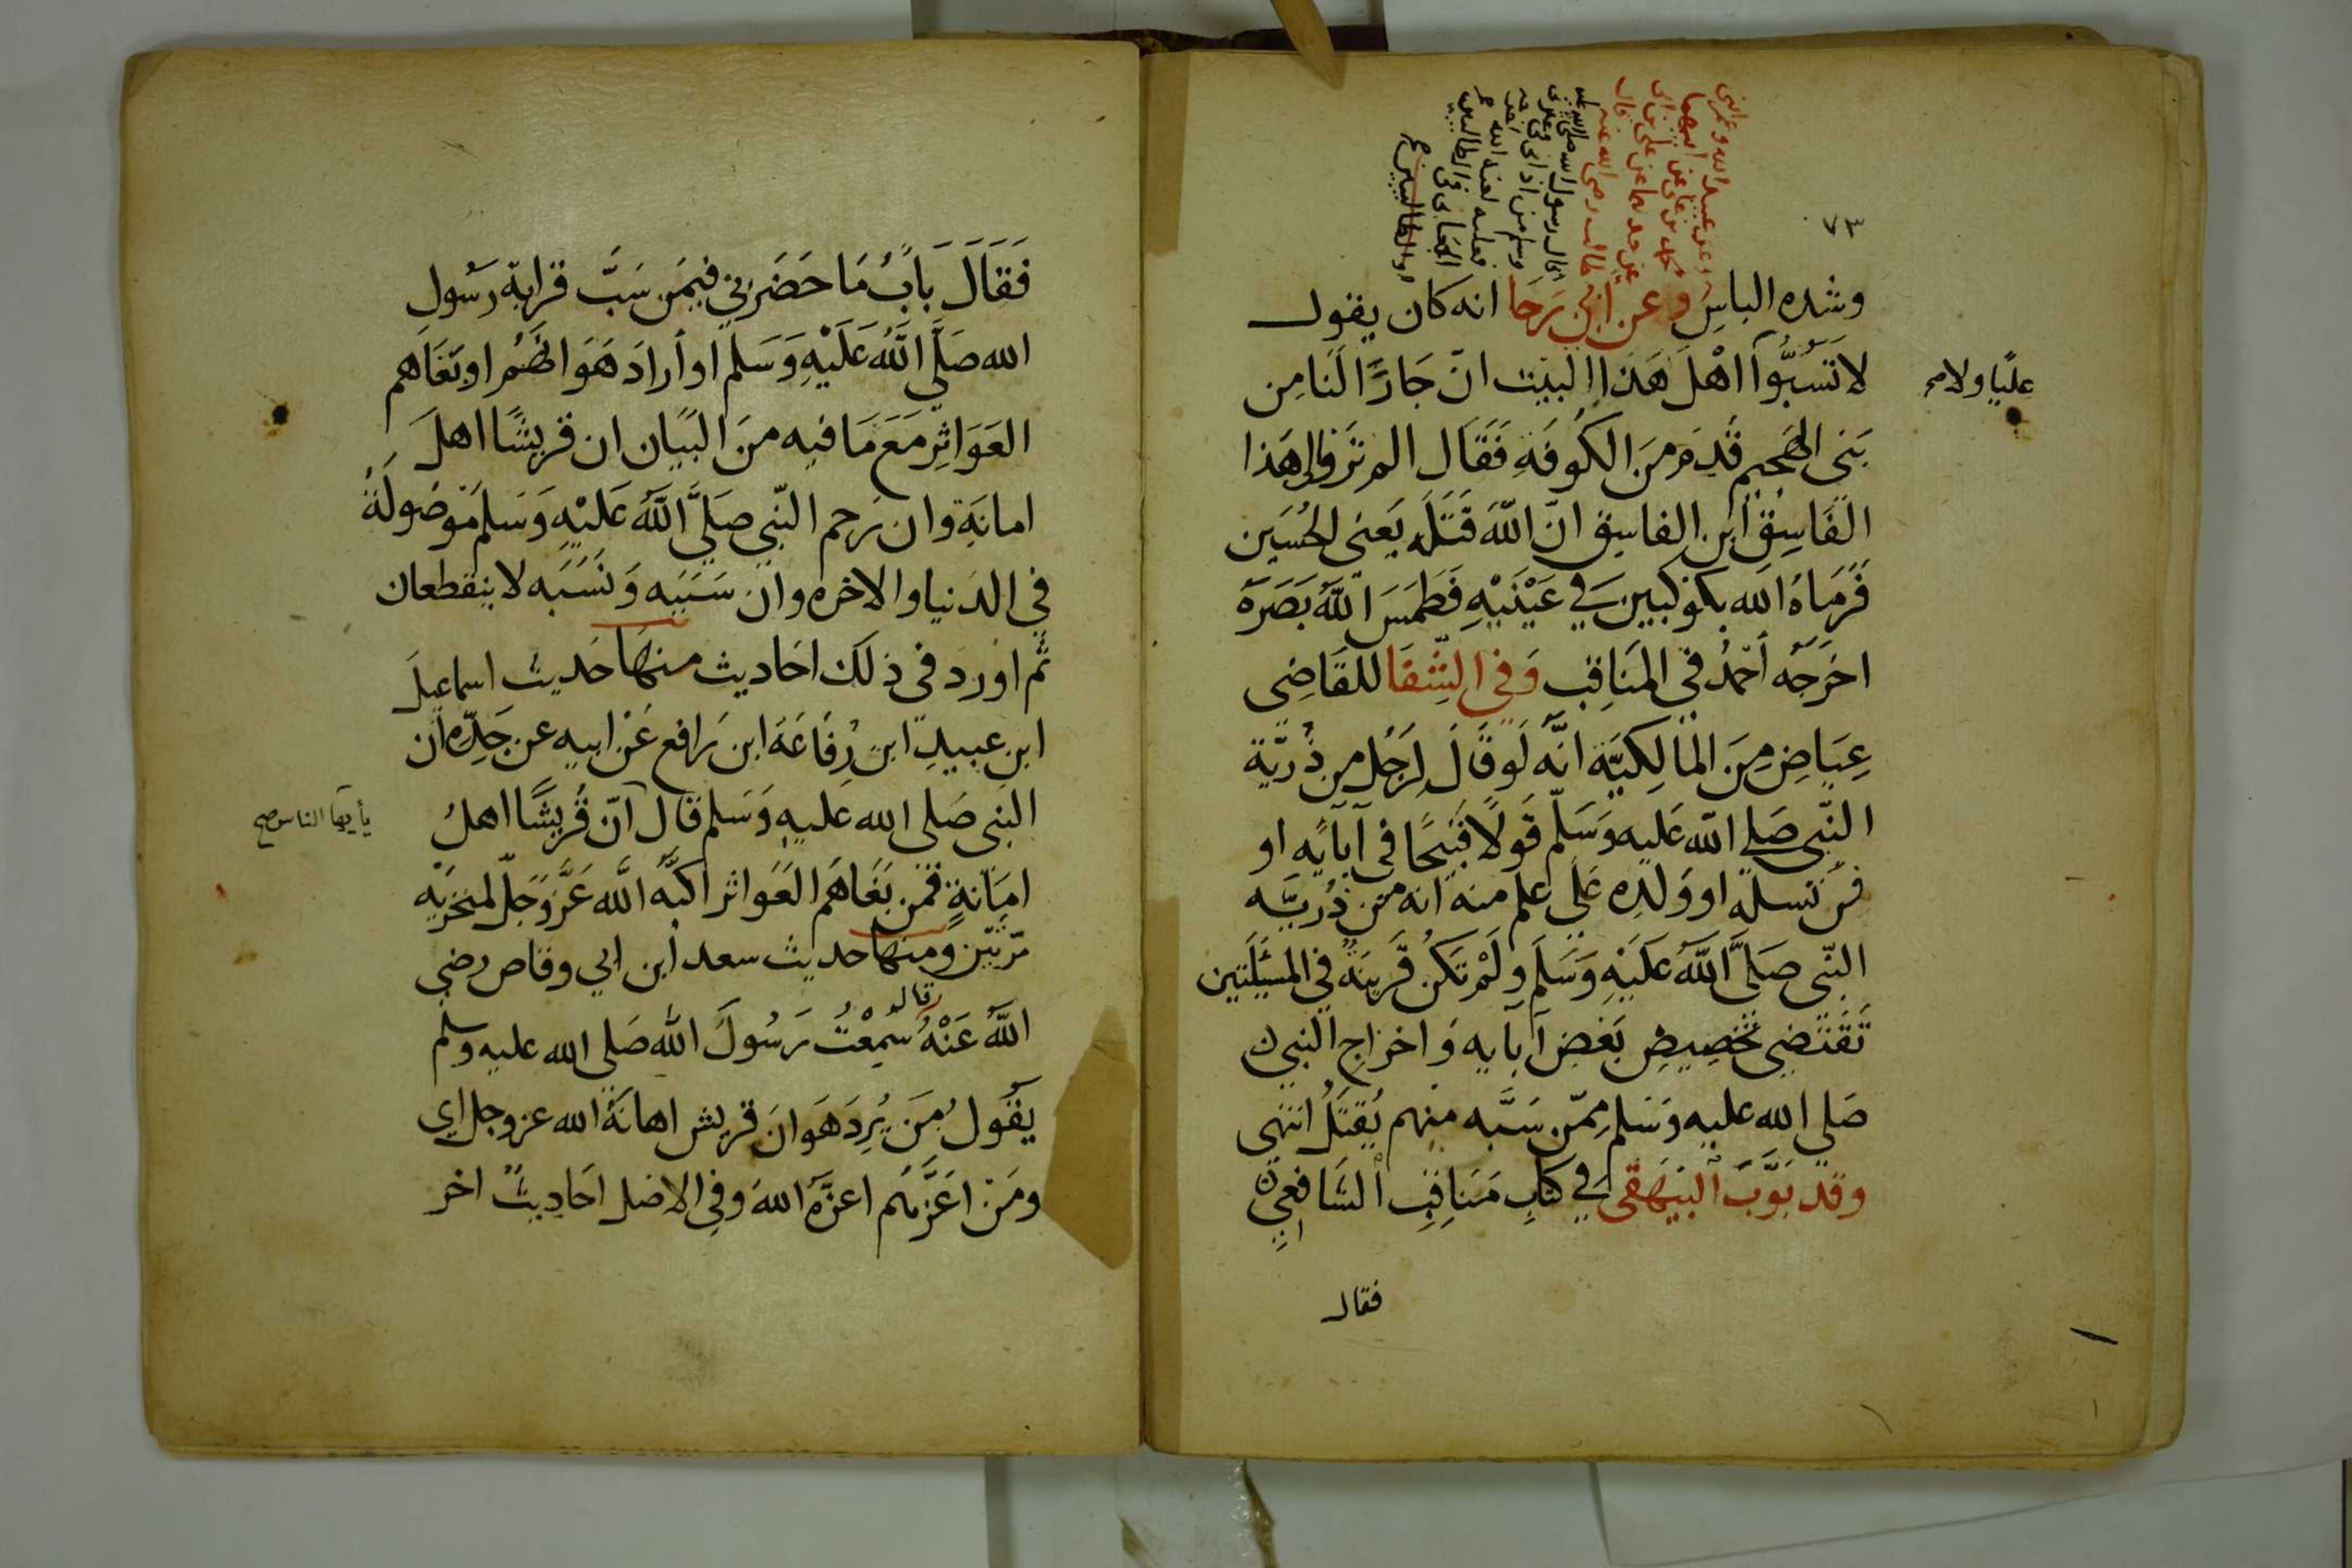 ٧٣
وعن عبيد الله وعمر ابني
محمد بن علي عن ابيهما
عن جدهما عن علي بن ابي
طالب رضي الله عنه قال
قال رسول الله صلى الله عليه
وسلم من اذاني في
فعليه لعنة الله
وشده الباس وعن أبي رجا انه كان يقول
لا تَسُبُّوا اهْلَ هَذا البيت انّ جَارًا لَنَا مِن
عليًا ولا صح
بَنى الهجيم قَدِمَ مِنَ الكُوفَةِ فَقَال الم تَرَوا إلى هَذا
الفَاسِقْ ابن الفاسِقِ انّ اللّهَ قَتَلَه يَعني الحُسَين
فَرَمَاهُ الله بكَوكبين في عَيْنَيْهِ فَطَمَسَ اللّهُ بَصَرَهُ
اخرَجَه أحْمَدُ في المَنَاقِب وَفي الشِّفَا للقَاضِى
عِيَاضِ مِنَ المْالِكِيَّة انَّه لَو قَالَ لِرَجُل مِن ذُرّيّة
النّبى صَلى الله عَليه وَسَلّم قَولًا قَبيحًا في آبَائِه او
مِن نَسله او وَلَدِه عَلى علم منه انه مِن ذُريَّة
النّبى صَلَّى اللّهُ عَلَيْهِ وَسَلَم وَلَمْ تَكُن قَرِينَةٌ في المَسئَلَتين
تَقتَضِى تخصِيصِ بَعْضِ آبَايه وَاخرَاجِ النبي
صَلى الله عليه وَسَلم مِمّن سَبَّه منهم يُقتَلُ انتهى
وقد بَوَّبَ البَيهَقى في كتَابِ مَنَاقِبِ الشَّافِعي
فقال
فَقَالَ بَابُ مَا حَضَرَني فيمَن سَبَّ قرابة رسُول
الله صَلَّى اللَّهُ عَلَيْهِ وَسَلم او أرادَ هَوَانهُم او بَغَاهم
العَوَاثِر مَعَ مَا فيه منَ البَيَان ان قريشًا اهلَ
امانة وان رَحم النّبى صَلَّى اللّهُ عَليْهِ وَسَلم مَوصُولَةٌ
في الدنيا والاخره وان سَبَبَه وَنَسَبَه لا ينقطعان
ثم اورَد فى ذلك احاديث منهَا حَديث اسماعيلَ
ابن عبيدِ ابن رِفَاعَةَ ابن رَافع عَن ابيه عن جَدِّه ان
النبى صَلى الله عليه وَسَلم قال انّ قُريشًا اهلُ
يأيها الناس صح
امَانةٍ فمَن بَغَاهَم العَوَاثر اكبَّه اللَّه عَزَّ وَجَلّ لمنخرَيْه
مَرّتَيْن وَمنهَا حديث سعد ابن ابي وقاص رضي
اللَّهُ عَنْهُ قال سَمِعْتُ رَسُولَ اللّه صَلى الله عليه وسلم
يقُولُ مَن يُرِد هَوَانَ قريش اهانَهُ الله عز وجل اي
ومَن اعَزَّهُم اعزّهُ اللهَ وفي الاصل احَادِيثٌ اخر